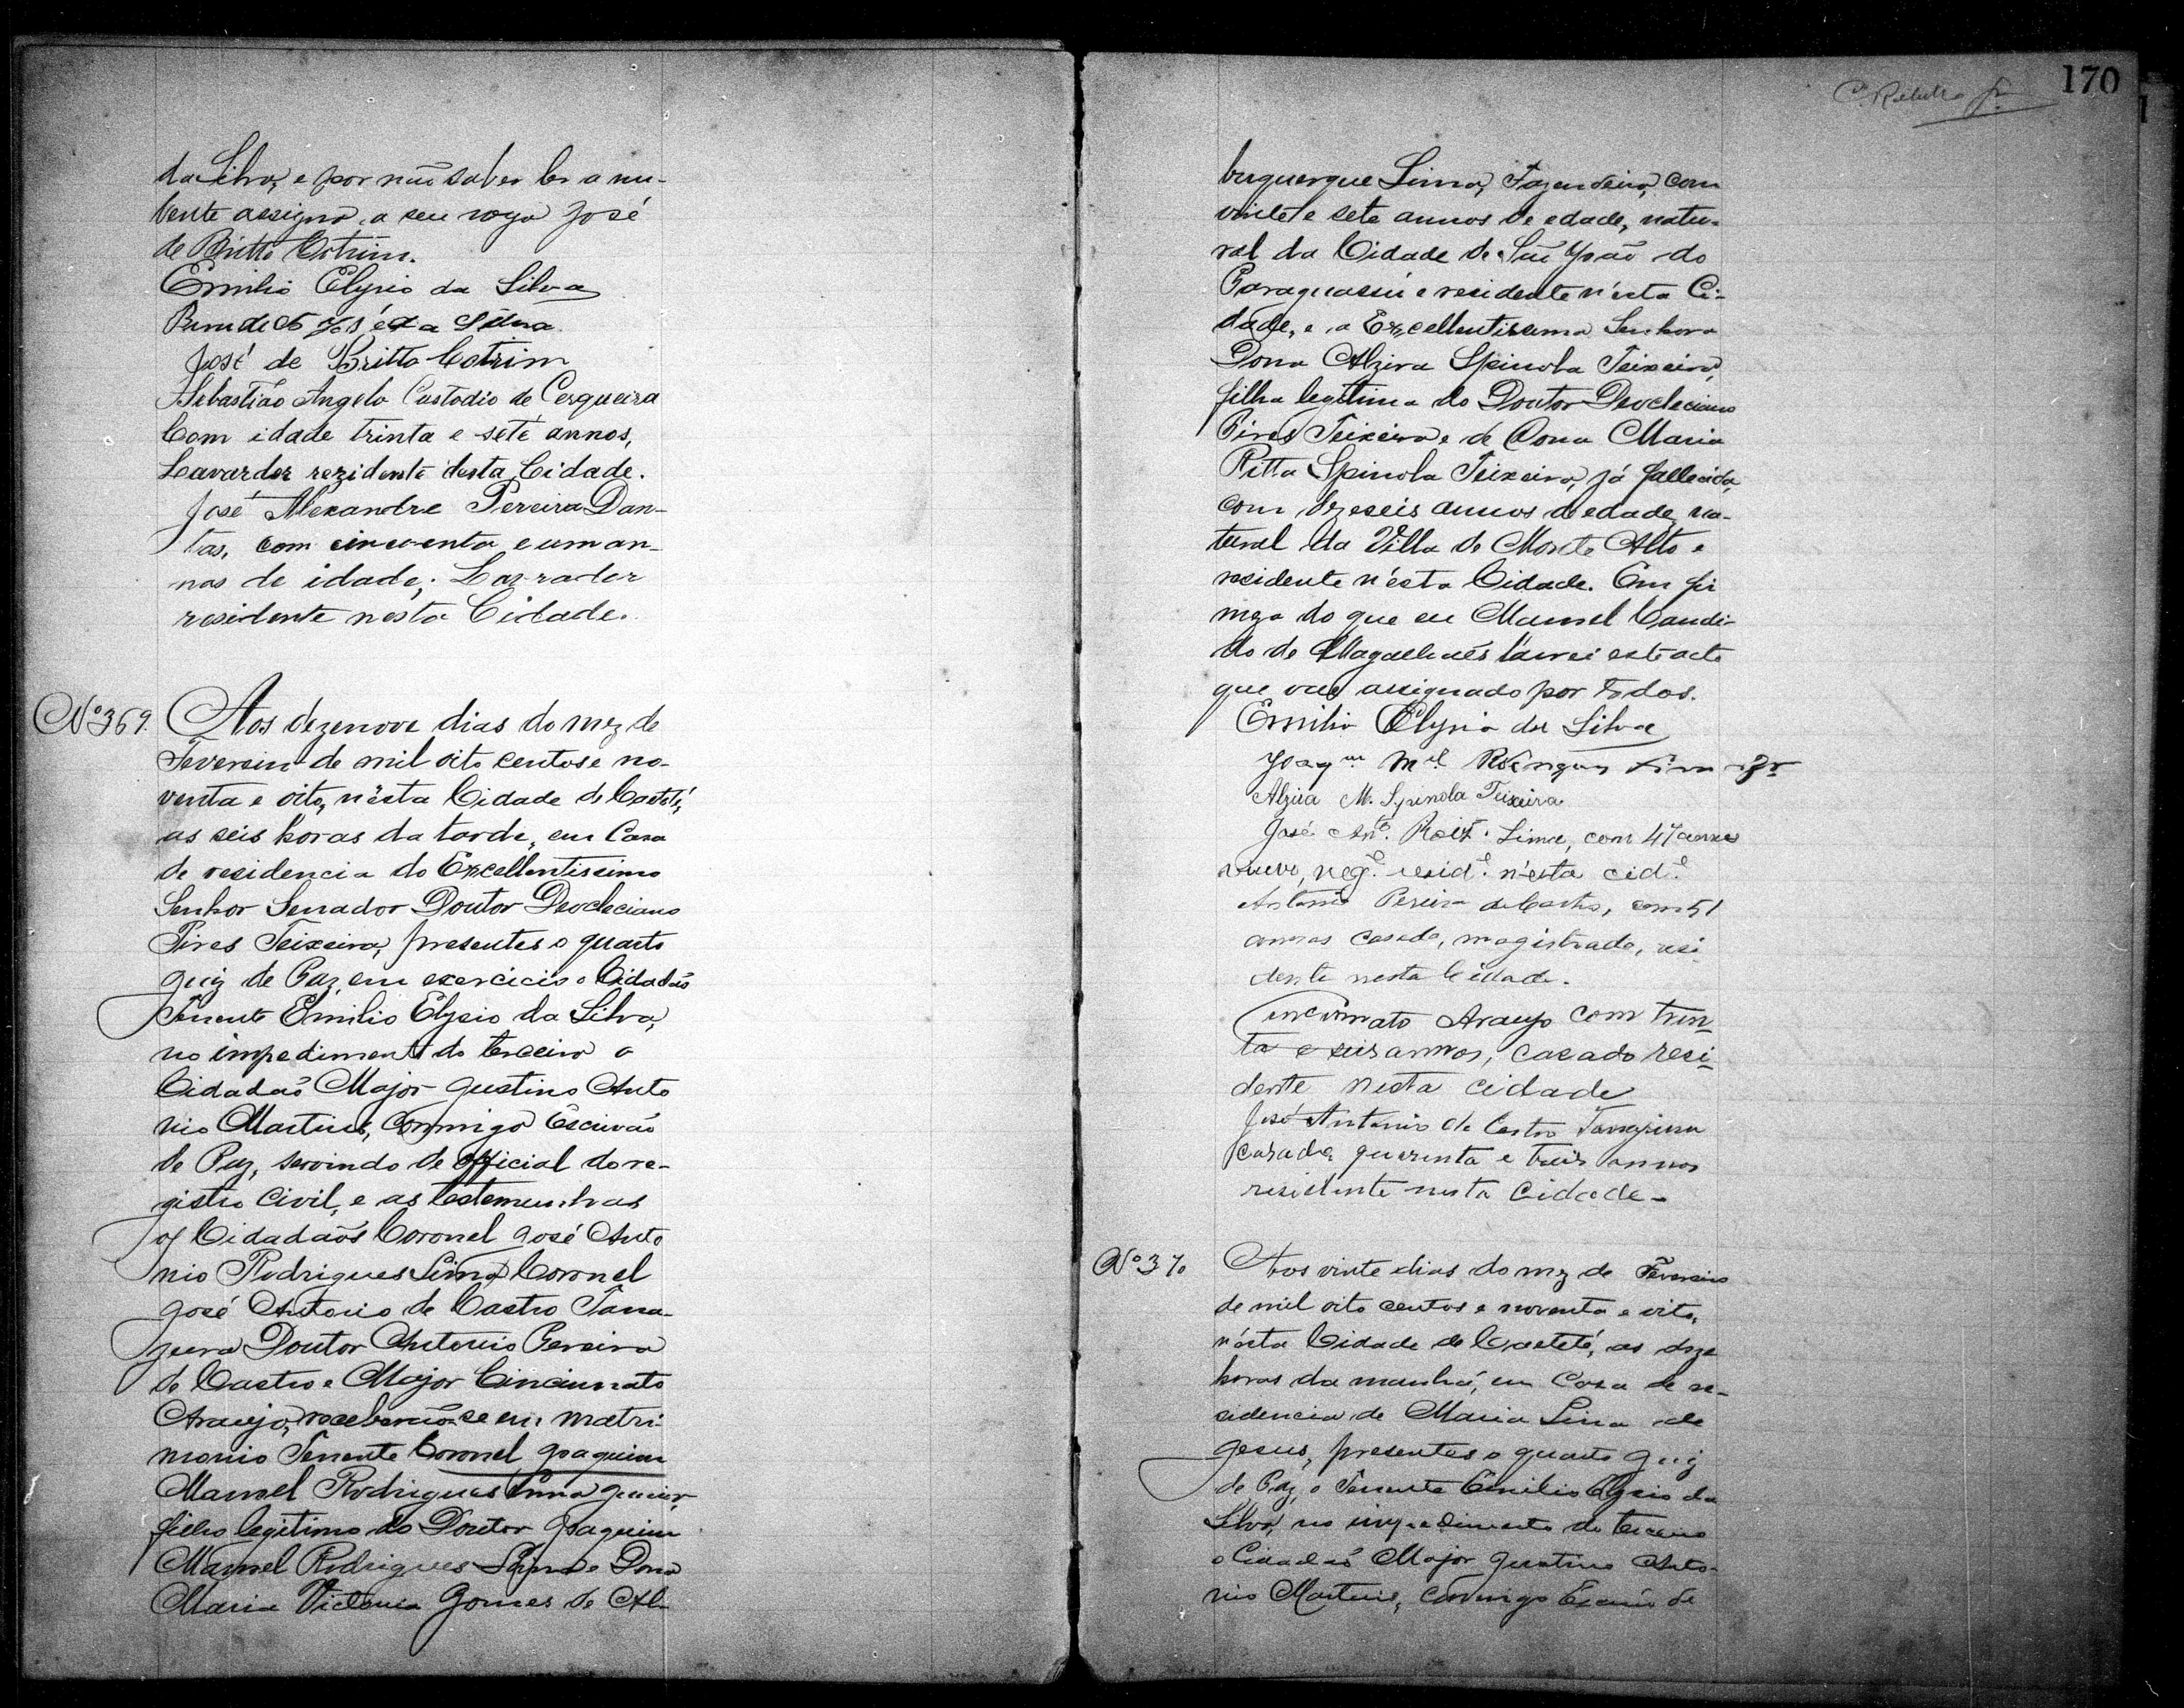 da Silva, e por não saber ler a nu-
bente assigna a seu rogo José
de Britto Cotrim.
Emilio Elysio da Silva
José da Silva
José de Britto Cotrim
Sebastião Angelo Custodio de Cerqueira
Com idade trinta e sete annos,
Lavarder rezidente desta Cidade.
José Alexandre Pereira Dan-
tas, com cincoenta e um an-
nos de idade; Lavrador
residente nesta Cidade.
Nº 369. Aos dezenove dias do mez de
Fevereiro de mil oito centos e no-
venta e oito, n'ésta Cidade de Caeteté,
as seis horas da tarde, em Casa
de residencia do Excellentissimo
Senhor Senador Doutor Deocleciano
Pires Teixeira, presentes o quarto
Juiz de Paz em exercicio o Cidadão
Tenente Emilio Elysio da Silva,
no impedimento do terceiro o
Cidadão Major Justino Anto
nio Martins, commigo Escrivão
de Paz, servindo de official do re-
gistro civil, e as testemunhas
os Cidadãos Coronel José Anto
nio Rodrigues Lima, Coronel
José Antonio de Castro Tana-
jura Doutor Antonio Pereira
de Castro e Major Cincinnato
Araujo, receberão-se em matri-
monio Tenente Coronel Joaquim
Manoel Rodrigues Lima Junior,
filho legitimo do Doutor Joaquim
Manoel Rodrigues Lima e Dona
Maria Victoria Gomes de Al-
170
buquerque Lima, Fazendeiro, com
vinte e sete annos de edade, natu-
ral da Cidade de São João do
Paraguassú e residente n'ésta Ci-
dade, e a Excellentissima Senhora
Dona Alzira Spinola Teixeira,
filha legitima do Doutor Deocleciano
Pires Teixeira e de Dona Maria
Ritta Spinola Teixeira, já fallecida,
com dezeseis annos de edade, na-
tural da Villa de Monte Alto e
residente n'ésta Cidade. Em fir
meza do que eu Manoel Candi-
do de Magalhães lavrei este acto
que vae assignado por todos.
Emilio Elysio da Silva
Joaqm Mel Roiz Lima Jr
Alzira M. Spinola Teixeira
José Anto. Roiz. Lima, com 47 annos
viuvo, nege. reside. n'esta cide.
Antonio Pereira de Castro, com 51
annos casado, magistrado, resi
dente nesta Cidade.
Cincinnato Araujo com trin-
ta e seis annos, casado resi-
dente nesta cidade
José Antonio de Castro Tanajura
casado, quarenta e tres annos
residente nesta Cidade-
Nº 370 Aos vinte dias do mez de Fevereiro
de mil oito centos e noventa e oito,
n'ésta Cidade de Caeteté, as doze
horas da manhã, em Casa de re-
sidencia de Maria Lina de
Jesus, presentes o quarto Juiz
de Paz, o Tenente Emilio Elysio da
Silva, no impedimento do terceiro
o Cidadão Major Justino Anto-
nio Martins, commigo Escrivão de